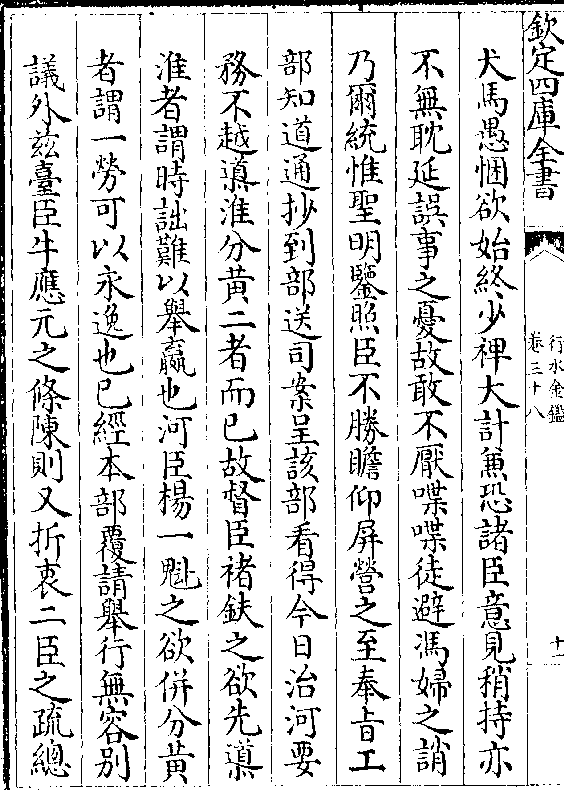 欽定四庫全書
行水金鑑
卷三十八
十
犬馬愚悃欲始終少裨大計兼恐諸臣意見稍持亦
不無耽延誤事之憂故敢不厭喋喋徒避馮婦之誚
乃爾統惟聖明鑒照臣不勝瞻仰屏營之至奉旨工
部知道通抄到部送司案呈該部看得今日治河要
務不越導淮分黃二者而已故督臣褚鈇之欲先導
淮者謂時詘難以舉贏也河臣楊一魁之欲併分黃
者謂一勞可以永逸也已經本部覆請舉行無容别
議外兹臺臣牛應元之條陳則又折衷二臣之疏總